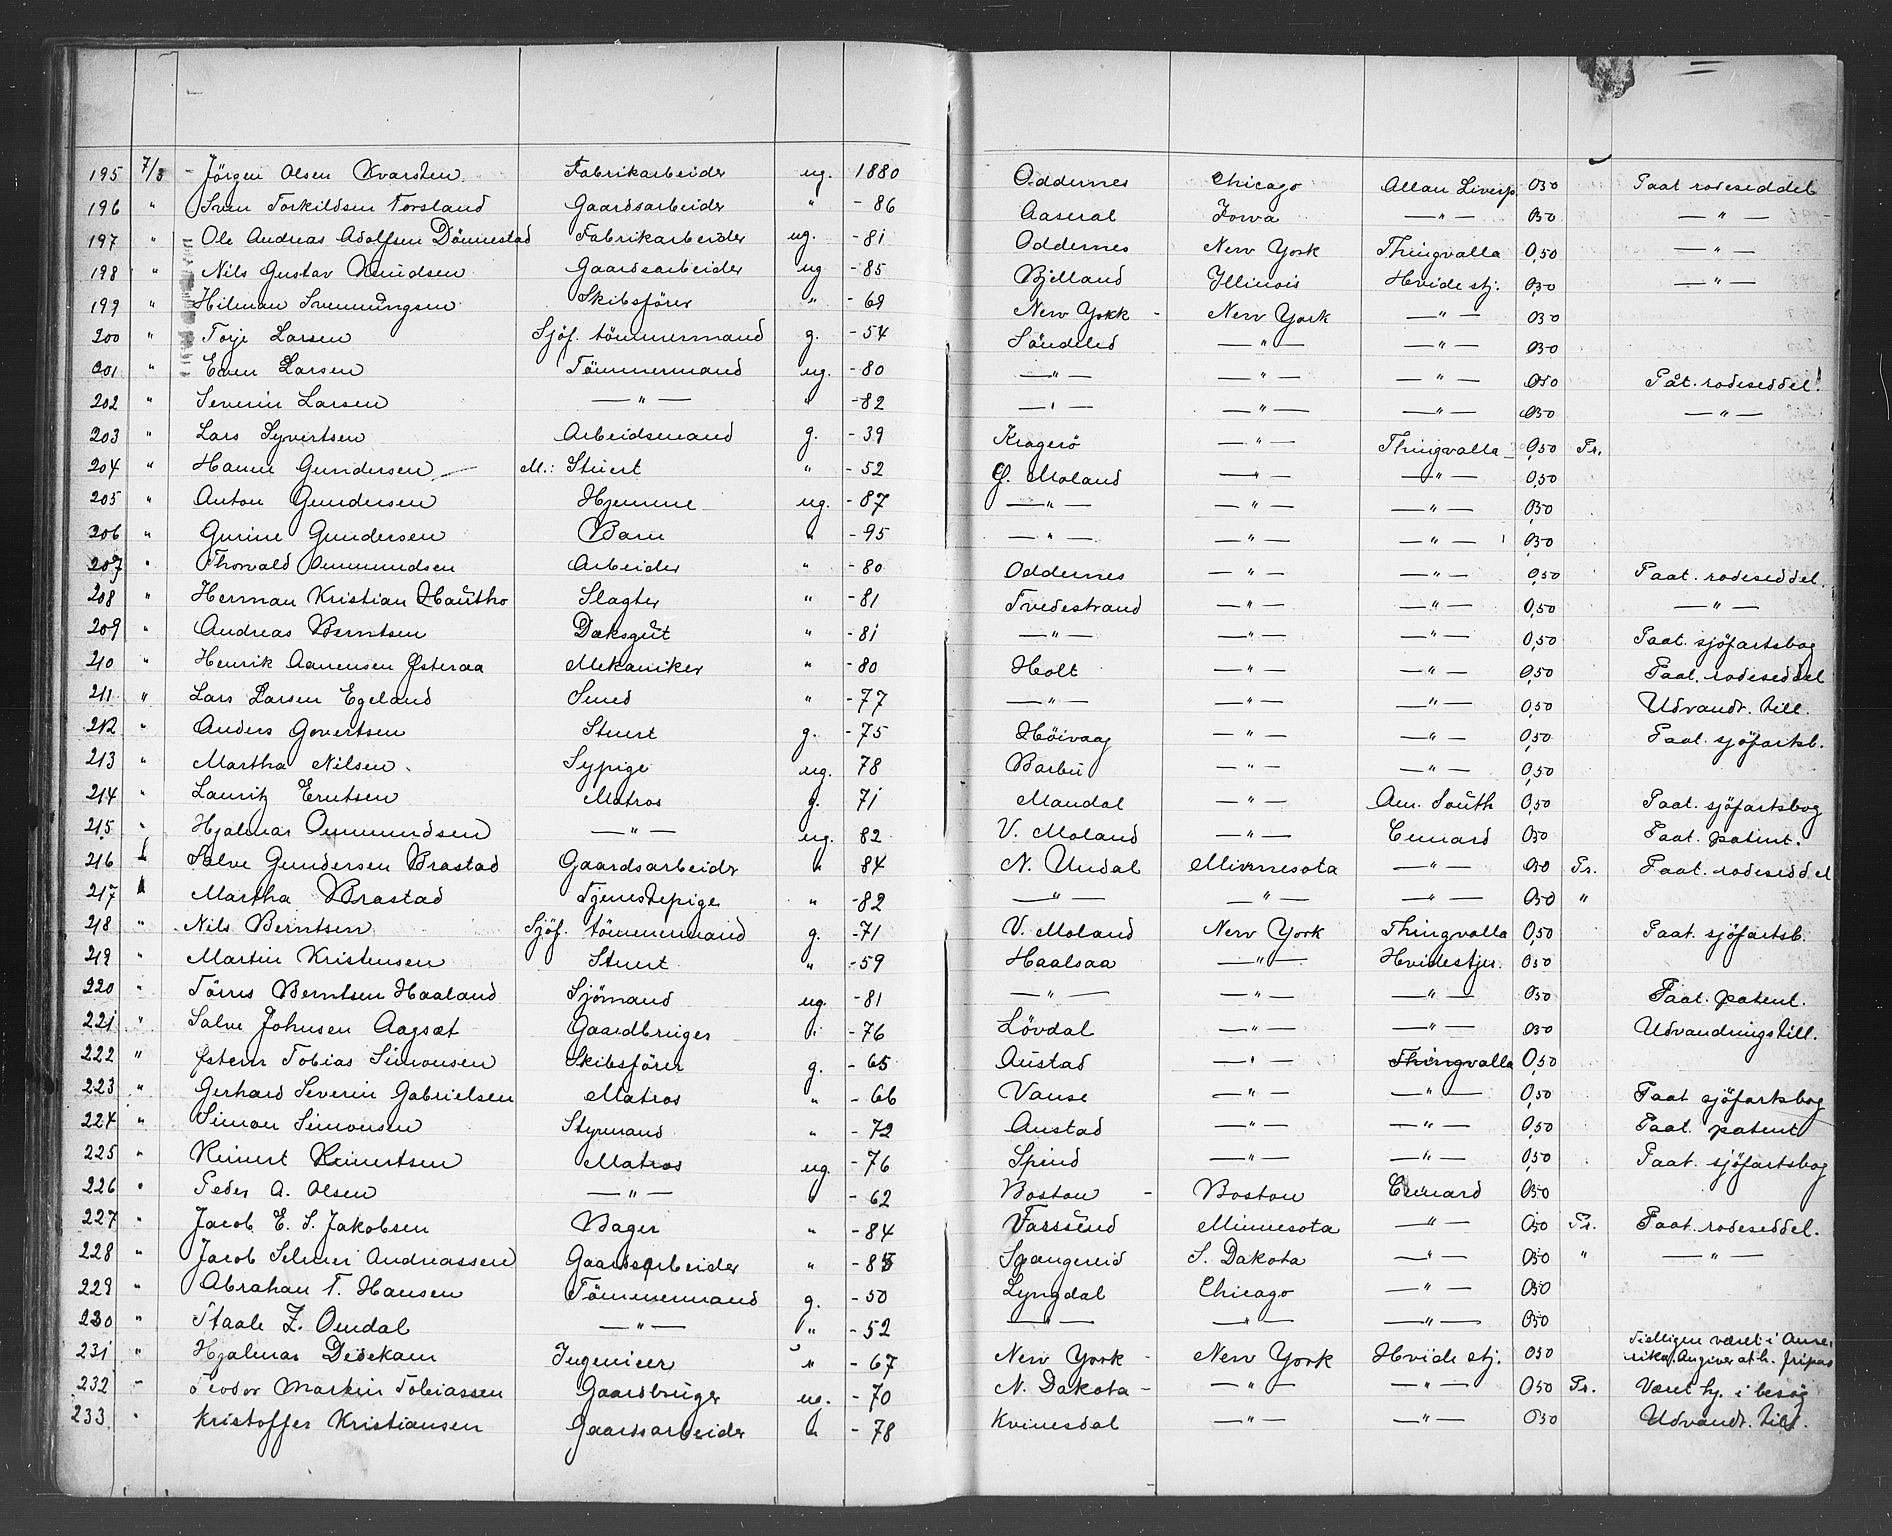 195 7/3 - Jörgen Olsen Kvarsten Fabrikarbeider ug. 1880 Oddernes Chicago Allan Liverp. 0,50 Paat rodeseddel
196 " Sven Torkildsen Forsland Gaardsarbeider " - 86 Aaseral Iowa —"— 0,50 —"—
197 " Ole Andreas Adolfsen Dönnestad Fabrikarbeider ug. - 81 Oddernes New York Thingvalla 0,50 —"—
198 " Nils Gustav Knudsen Gaardsarbeider ug - 85 Bjelland Illinois Hvide stj. 0,50 —"—
199 " Hilman Svenningsen Skibsförer " - 69 New York - New York —"— 0,50
200 " Torje Larsen Sjöf. tömmermand g. - 54 Söndeled —"— —"— 0,50
201 " Even Larsen Tömmermand ug. - 80 —"— —"— —"— 0,50 Påt. rodeseddel.
202 " Severin Larsen —"— " - 82 —"— —"— —"— 0,50 —"—
203 " Lars Syvertsen Arbeidsmand g. - 39 Kragerö —"— Thingvalla 0,50 Pr.
204 " Hanne Gundersen M.: Stuert " - 52 Ø. Moland —"— —"— 0,50
205 " Anton Gundersen Hjemme ug. - 87 —"— —"— —"— 0,50
206 " Gurine Gundersen Barn " - 95 —"— —"— —"— 0,50
207 " Thorvald Ommundsen Arbeider " - 80 Oddernes —"— —"— 0,50 Paat. rodeseddel.
208 " Herman Kristian Hautho Slagter " - 81 Tvedestrand —"— —"— 0,50 —"—
209 " Andreas Berntsen Dæksgut " - 81 —"— —"— —"— 0,50 Paat. sjöfartsbog
210 " Henrik Aanensen Østeraa Mekaniker " - 80 Holt —"— —"— 0,50 Paat. rodeseddel
211 " Lars Larsen Egeland Smed " - 77 —"— —"— —"— 0,50 Udvandr. till.
212 " Anders Govertsen Stuert g. - 75 Höivaag —"— —"— 0,50 Paat. sjöfartsb.
213 " Martha Nilsen Sypige ug. 78 Barbu —"— —"— 0,50
214 " Lauritz Erntsen Matros g. 71 Mandal —"— Am. South 0,50 Paat. sjöfartsbog
215 " Hjalmar Ommundsen —"— ug. 82 V. Moland —"— Cunard 0,50 Paat. patent.
216 " Salve Gundersen Brastad Gaardsarbeidr " 84 N. Undal Minnesota —"— 0,50 Pr. Paat. rodeseddel
217 " Martha Brastad Tjenestepige " - 82 —"— —"— —"— 0,50 "
218 " Nils Berntsen Sjöf. tömmermand g. - 71 V. Moland New York Thingvalla 0,50 Paat. sjöfartsb.
219 " Martin Kristensen Stuert " - 59 Haalsaa —"— Hvidestjer. 0,50
220 " Törres Berntsen Haaland Sjömand ug. - 81 —"— —"— —"— 0,50 Paat. patent.
221 " Salve Johnsen Aagsæt Gaardbruger " - 76 Lövdal —"— —"— 0,50 Udvandringstill.
222 " Østern Tobias Simonsen Skibsförer g. - 65 Austad —"— Thingvalla 0,50
223 " Gerhard Severin Gabrielsen Matros " - 66 Vanse —"— —"— 0,50 Paat sjöfartsbog
224 " Simon Simonsen Styrmand " - 72 Austad —"— —"— 0,50 Paat. patent
225 " Reinert Reinertsen Matros ug. - 76 Spind —"— —"— 0,50 Paat. sjöfartsbog
226 " Peder A. Olsen —"— " - 62 Boston - Boston Cunard 0,50
227 " Jacob E. S. Jakobsen Bager " - 84 Farssund Minnesota —"— 0,50 Pr. Paat. rodeseddel.
228 " Jacob Selmer Andreassen Gaardsarbeider " - 85 Spangereid S. Dakota —"— 0,50 " —"—
229 " Abrahan T. Hansen Tömmermand g. - 50 Lyngdal Chicago —"— 0,50
230 " Staale Z. Omdal —"— " - 52 —"— —"— —"— 0,50
231 " Hjalmar Dedekam Ingenieer " - 67 New York - New York Hvide stj. 0,50 Tidligere været i Ame-
rika. Angiver at h. fripas
232 " Teodor Martin Tobiassen Gaardbruger ug. - 70 N. Dakota - —"— —"— 0,50 Pr. Været hj. i besög
233 " Kristoffer Kristiansen Gaardsarbeider " - 78 Kvinesdal —"— —"— 0,50 Udvandr. till.